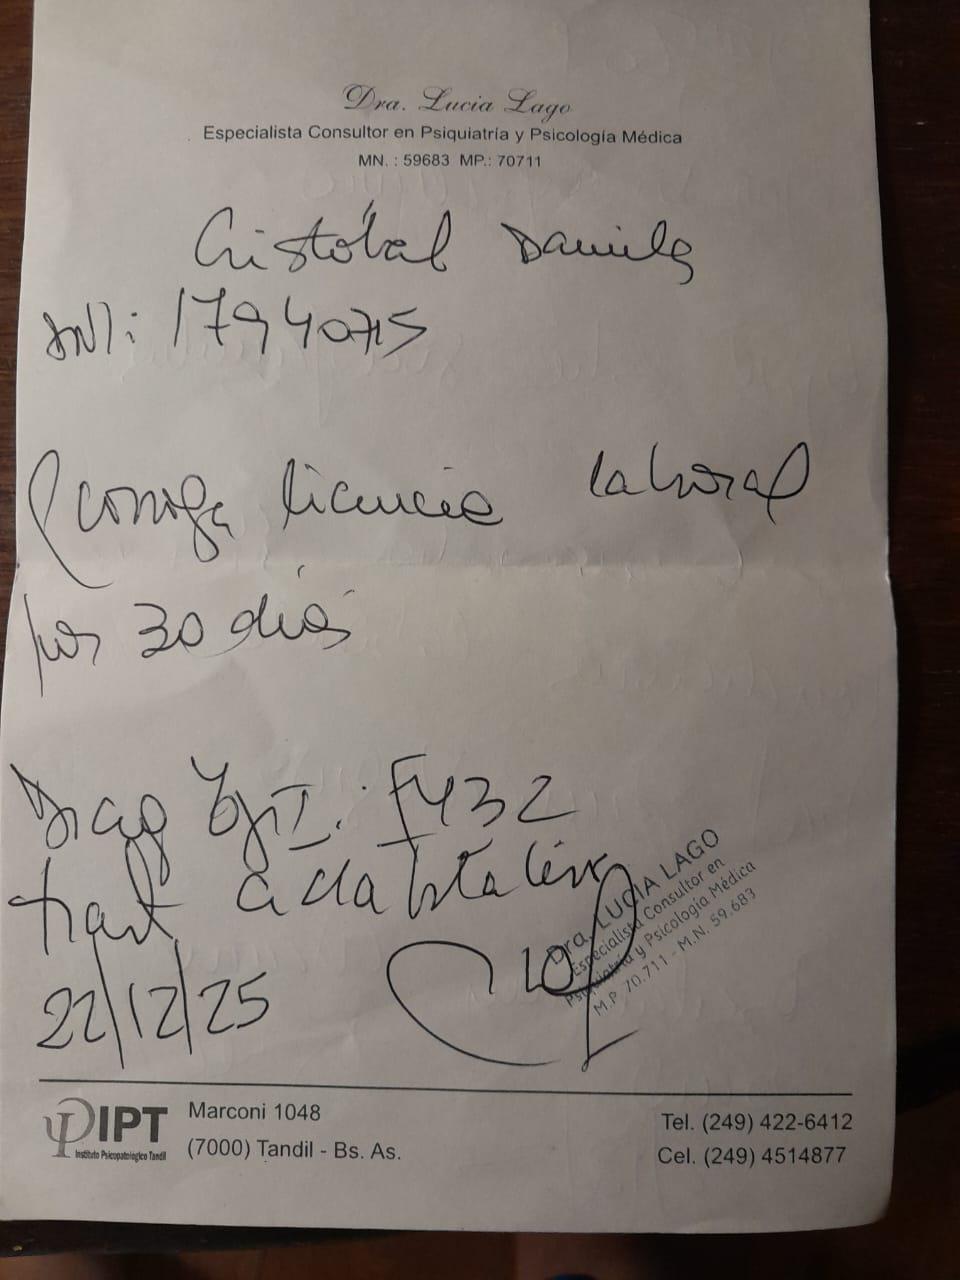 Dra. Lucia Lago
Especialista Consultor en Psiquiatría y Psicología Médica
MN. : 59683 MP.: 70711
Cristóbal Daniela
DNI: 17940715
Prorroga licencia laboral
por 30 días
Diag Eje I: F432
trat
22/12/25
Dra. LUCIA LAGO
Especialista Consultor en
Psiquiatría y Psicología Médica
M.P. 70.711 - M.N. 59.683
IPT
Instituto Psicopatológico Tandil
Marconi 1048
(7000) Tandil - Bs. As.
Tel. (249) 422-6412
Cel. (249) 4514877